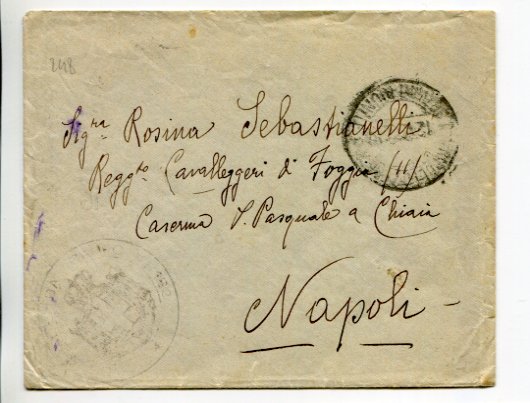 248
Sigra Rosina Sebastianelli
Reggto Cavalleggeri di Foggia (11)
Caserma S. Pasquale a Chiaia
Napoli